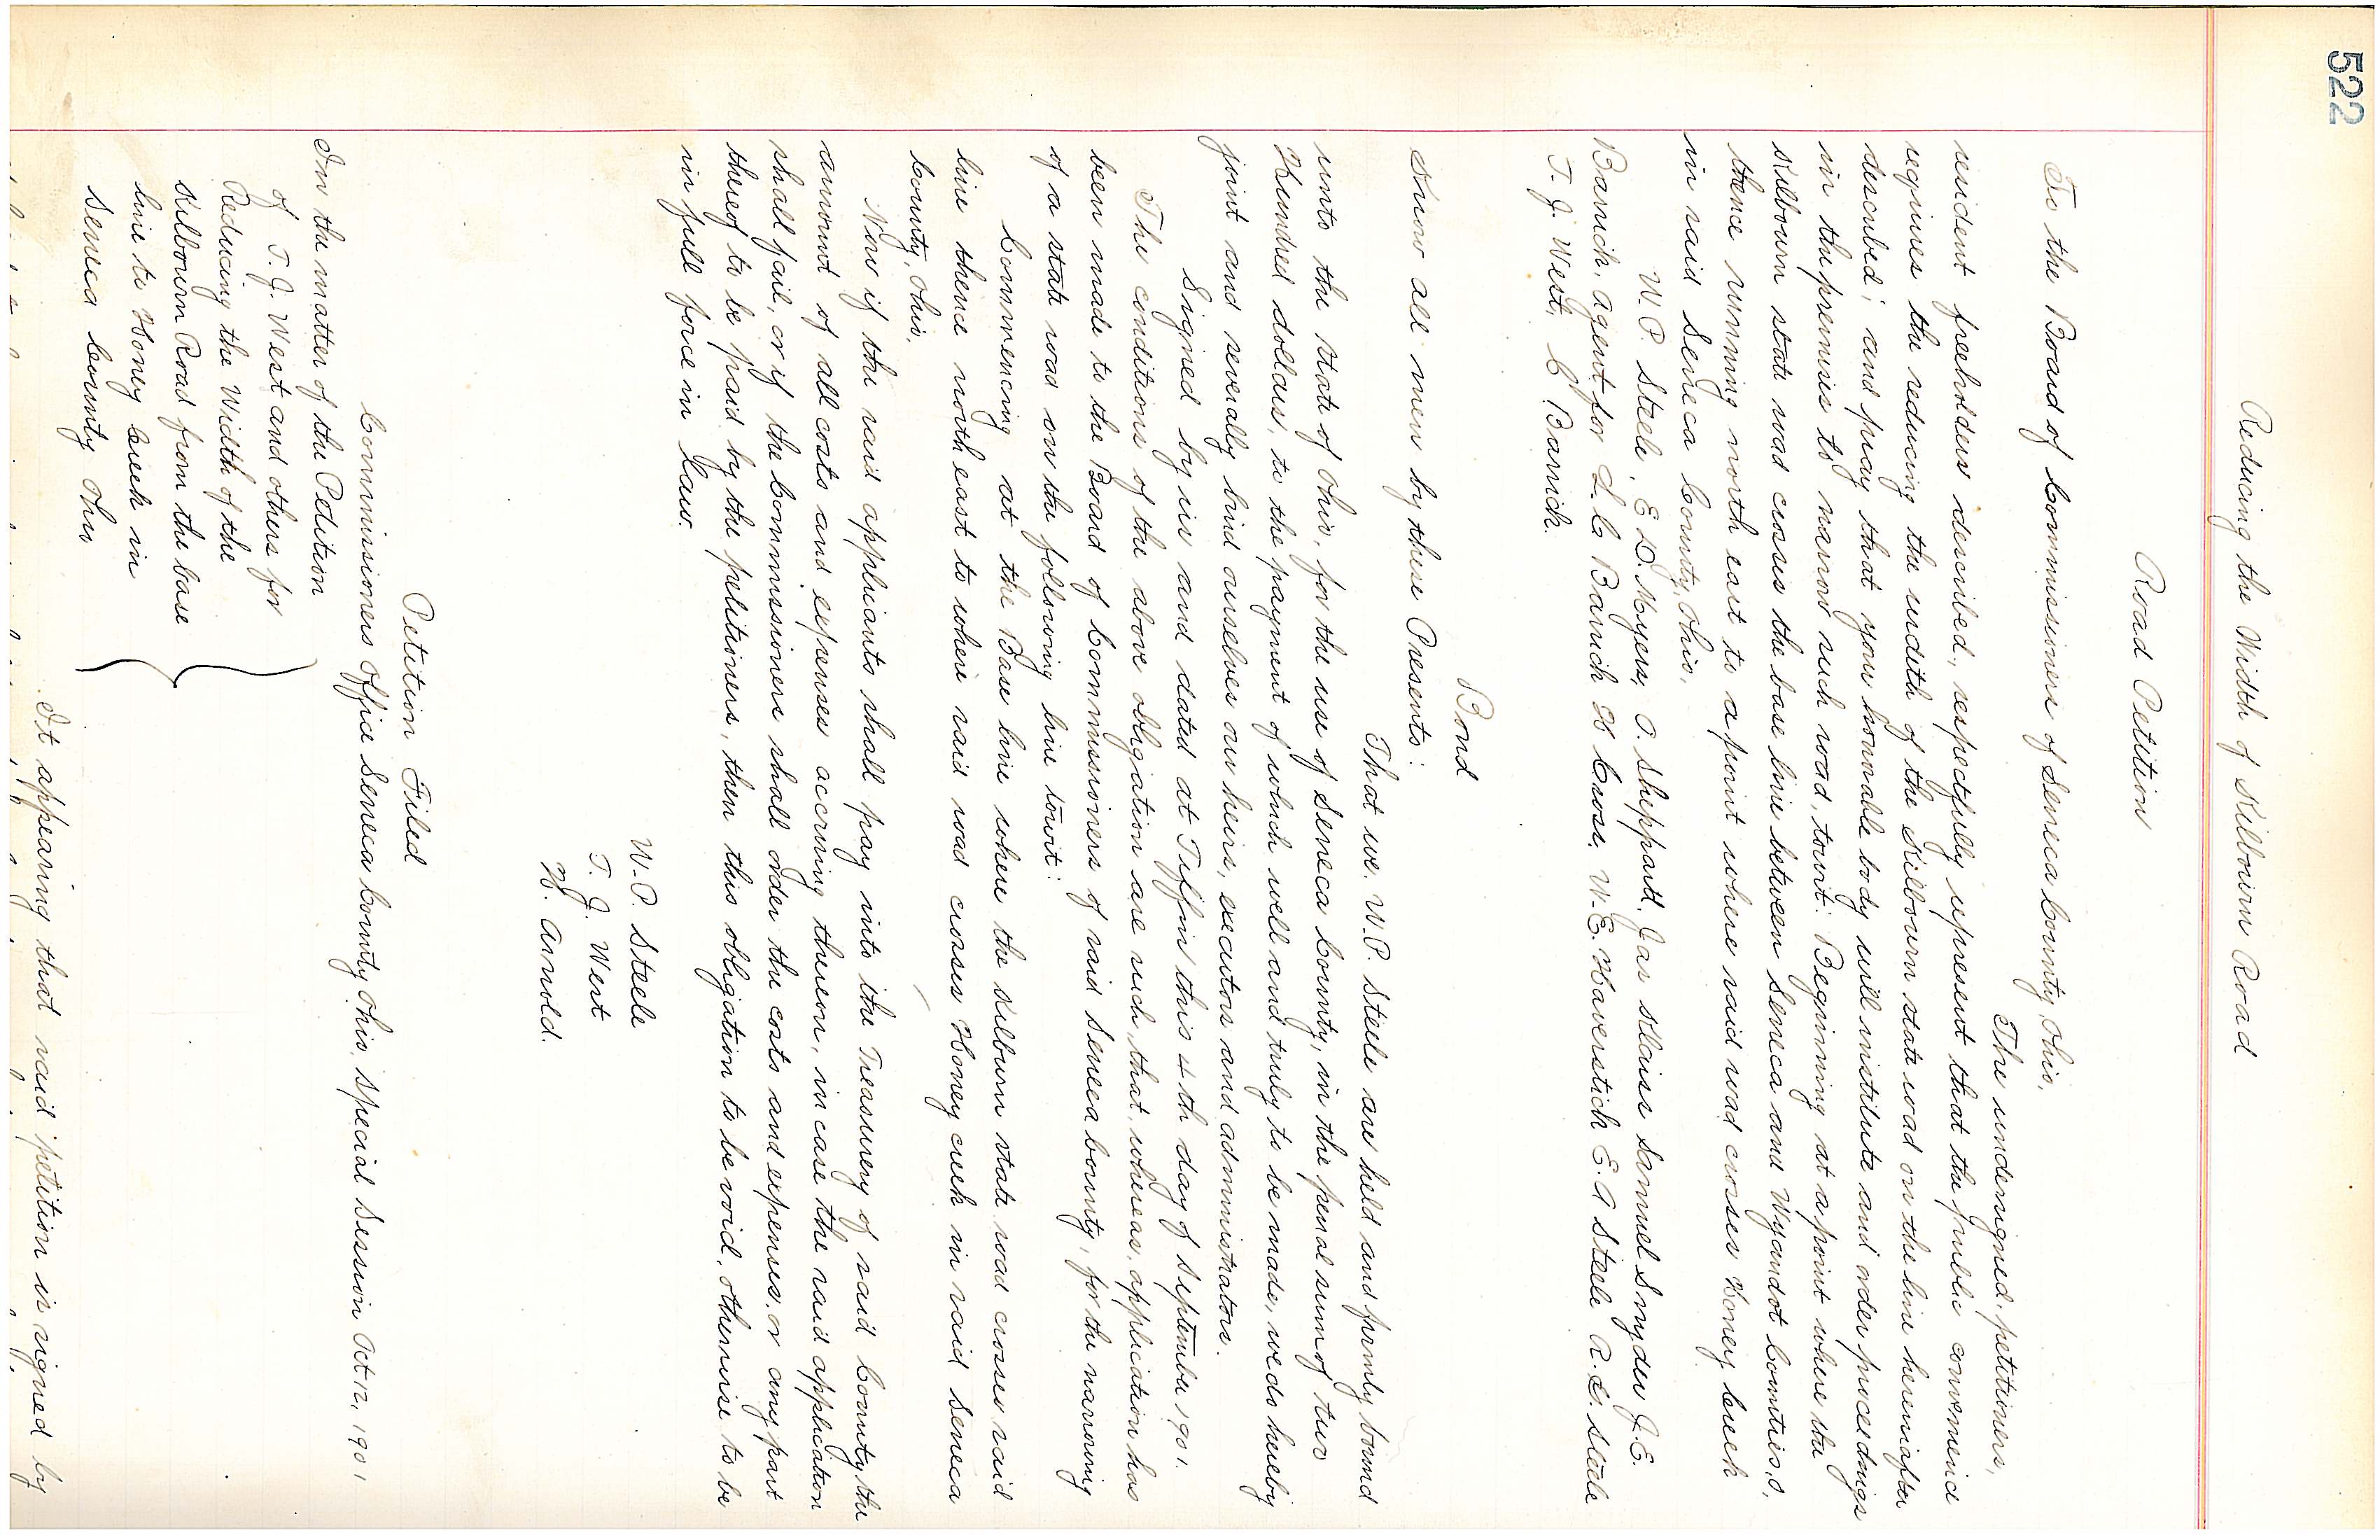 522
Reducing the Width of Kilbourn Road
Road Petition
To the Board of Commissioners of Seneca County, Ohio,
The undersigned, petitioners,
resident freeholders described, respectfully represent that the public convenience
requires the reducing the width of the Kilbourn state road on the line hereinafter
described; and pray that your honorable body will institute and order proceedings
in the premises to narrow such road, towit: Beginning at a point where the
Kilbourn state road crosses the base line between Seneca and Wyandot Counties, O,
thence running north east to a point where said road crosses Honey Creek
in said Seneca County, Ohio,
W. P. Steele, E. D. Myers, O. Sheppard, Jas Klais Samuel Snyder J. E.
Barrick, Agent for L. C. Barrick H Crose, W. E. Haverstick E. A Steele R. G. Steele
T. J. West, C. Barrick.
Bond
Know all men by these Presents:
That we. W. P. Steele are held and firmly bound
unto the State of Ohio, for the use of Seneca County, in the penal sum of two
Hundred dollars, to the payment of which well and truly to be made, we do hereby
joint and severally bind ourselves our heirs, executors and administrators.
Signed by us and dated at Tiffin this 4th day of September 1901.
The conditions of the above obligation are such, that, whereas, application has
been made to the Board of Commissioners of said Seneca County, for the narrowing
of a state road on the following line towit:
Commencing at the Base line where the Kilburn state road crosses said
line thence north east to where said road crosses Honey creek in said Seneca
County, Ohio,
Now if the said applicants shall pay into the Treasurery of said County the
amount of all costs and expenses accruing thereon, in case the said application
shall fail, or if the Commissioners shall order the costs and expenses, or any part
thereof to be paid by the petitioners, then this obligation to be void, otherwise to be
in full force in law.
W. P. Steele
T. J. West
H. Arnold.
Petition Filed
Commissioners office Seneca County Ohio, Special Session Oct 12, 1901
In the matter of the Petition
of T. J. West and others for
Reducing the Width of the
Kilbourn Road from the base
line to Honey Creek in
Seneca County Ohio
It appearing that said petition is signed by